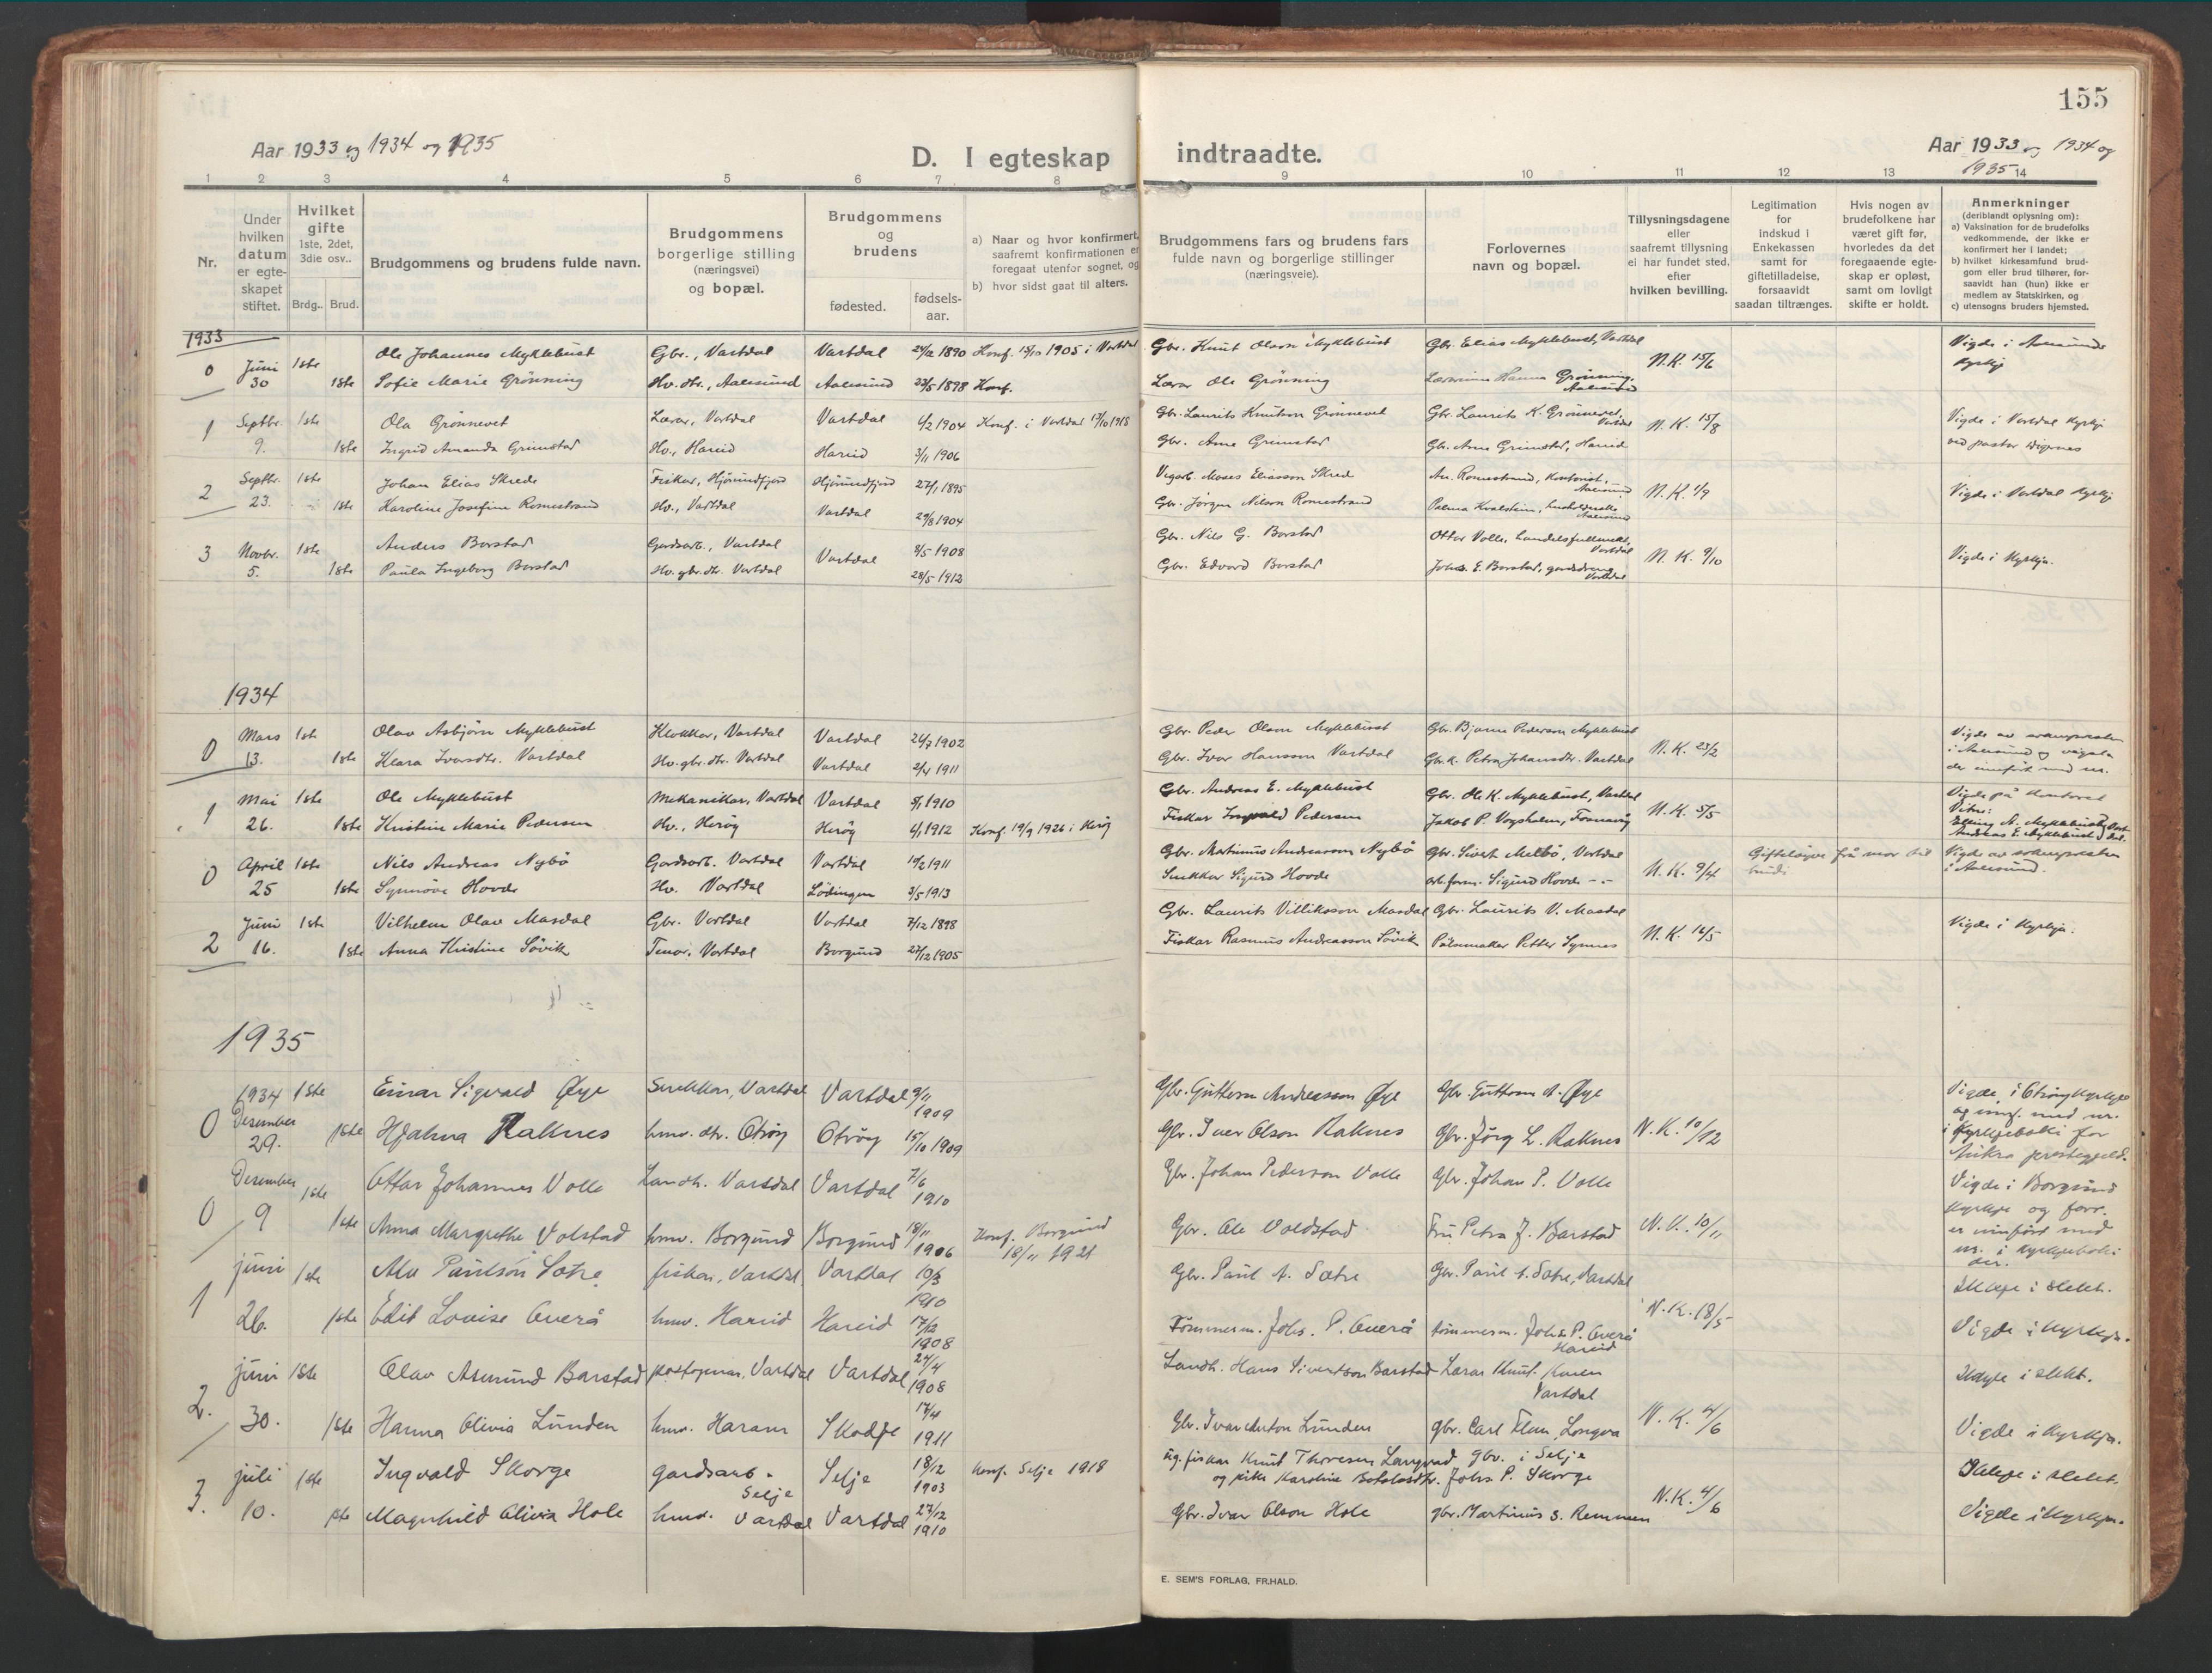 155
Aar 1933 og 1934 og 1935
D. I egteskap indtraadte.
Aar 1933 og 1934 og
1935
1 2 3 4 5 6 7 8 9 10 11 12 13 14
Nr.
Under hvilken datum er egte-skapet stiftet.
Hvilket gifte 1ste, 2det, 3die osv..
Brdg.. Brud.
Brudgommens og brudens fulde navn.
Brudgommens borgerlige stilling (næringsvei) og bopæl.
Brudgommens og brudens
fødested. fødsels-aar.
a) Naar og hvor konfirmert, saafremt konfirmationen er foregaat utenfor sognet, og
b) hvor sidst gaat til alters.
Brudgommens fars og brudens fars fulde navn og borgerlige stillinger (næringsveie).
Forlovernes navn og bopæl.
Tillysningsdagene eller saafremt tillysning ei har fundet sted, efter hvilken bevilling.
Legitimation for indskud i Enkekassen samt for giftetilladelse, forsaavidt saadan tiltrænges.
Hvis nogen av brudefolkene har været gift før, hvorledes da det foregaaende egte-skap er opløst, samt om lovligt skifte er holdt.
Anmerkninger (deriblandt oplysning om):
a) Vaksination for de brudefolks vedkommende, der ikke er konfirmert her i landet;
b) hvilket kirkesamfund brud-gom eller brud tilhører, for-saavidt han (hun) ikke er medlem av Statskirken, og
c) utensogns bruders hjemsted.
1933
0 Juni 1ste Ole Johannes Myklebust Gbr., Vartdal Vartdal 24/12 1890 Konf. 15/10 1905 i Vartdal Gbr. Knut Olson Myklebust Gbr. Elias Myklebust, Vartdal N.K. 15/6 Vigde i Aalesunds
30 1ste Sofie Marie Grönning Hv. dtr., Aalesund Aalesund 23/5 1898 Konf. Lærar Ole Grönning Lærarinne Hanna Grönning, Aalesund kyrkje
1 Septbr. 1ste Ola Grönnevet Lærar, Vartdal Vartdal 6/2 1904 Konf. i Vartdal 13/10 1918 Gbr. Laurits Knutson Grönnevet Gbr. Laurits K. Grönnevet, Vartdal N.K. 15/8 Vigde i Vartdal kyrkje
9. 1ste Ingrid Amanda Grimstad Hv., Hareid Hareid 3/11 1906 Gbr. Arne Grimstad Gbr. Arne Grimstad, Hareid ved pastor Digernes
2 Septbr. 1ste Johan Elias Skrede Fiskar, Hjörundfjord Hjörundfjord 27/1 1895 Vegarb. Moses Eliasson Skrede An. Romestrand, kontorist, Aalesund N.K. 1/9 Vigde i Vartdal kyrkje
23. 1ste Karoline Josefine Romestrand Hv., Vartdal Vartdal 29/8 1904 Gbr. Jörgen Nilson Romestrand Palma Kvalsheim, Aalesund
3 Novbr. 1ste Anders Barstad Gardsarb., Vartdal Vartdal 3/5 1908 Gbr. Nils G. Barstad Ottar Volle, handelsfullmekt., Vartdal N.K. 9/10 Vigde i kyrkja.
5. 1ste Paula Ingeborg Barstad Hv. gbr. dtr. Vartdal 28/5 1912 Gbr. Edvard Barstad Johs. E. Barstad, gardsdreng Vartdal
1934
0 Mars 1ste Olav Asbjörn Myklebust Klokkar, Vartdal Vartdal 24/7 1902 Gbr. Peder Olson Myklebust Gbr. Bjarne Pederson Myklebust N.K. 23/2 Vigde av soknepresten
13. 1ste Klara Ivarsdtr. Vartdal Hv. gbr. dtr. Vartdal Vartdal 2/4 1911 Gbr. Ivar Hansson Vartdal Gbr.k. Petra Johansdtr. Vartdal i Aalesund og vigsla der innfört med nr.
1 Mai 1ste Ole Myklebust Mekanikar, Vartdal Vartdal 5/1 1910 Gbr. Andreas E. Myklebust Gbr. Ole K. Myklebust, Vartdal N.K. 5/5 Vigde på kontoret
26. 1ste Kristine Marie Pedersen Hv., Heröy Heröy 6/1 1912 Konf. 19/9 1926 i Heröy Fiskar Ingvald Pedersen Jakob P. Vogsholm, Fosnavåg Vitni: Elling A. Myklebust Andreas E. Myklebust Vartdal.
0 April 1ste Nils Andreas Nybö Gardsarb. Vartdal Vartdal 10/2 1911 Gbr. Martinus Andreasson Nybö Gbr. Sivert Melbö, Vartdal N.K. 9/4 Gifteløyve frå mor til brudi Vigde av soknepresten
25 1ste Synnöve Hovde Hv. Vartdal Lödingen 3/5 1913 Snekkar Sigurd Hovde arb.form. Sigurd Hovde -.- i Aalesund.
2 Juni 1ste Vilhelm Olav Masdal Gbr. Vartdal Vartdal 7/12 1898 Gbr. Laurits Villikson Masdal Gbr. Laurits V. Masdal N.K. 16/5 Vigde i kyrkja.
16. 1ste Anna Kristine Sövik Tenar, Vartdal Borgund 27/12 1905 Fiskar Rasmus Andreasson Sövik Pölsemaker Petter Synnes
1935
0 1934 1ste Einar Sigvald Øye Snekkar, Vartdal Vartdal 9/11 1909 Gbr. Guttorm Andreasson Øye Gbr. Guttorm A. Øye Vigde i Otröy kyrkje
Desember 29. 1ste Hjalma Raknes hmv. dtr. Otröy Otröy 15/10 1909 Gbr. Iver Olson Raknes Gbr. Jörg L. Raknes N.K. 10/12 og innf. med nr. i kyrkjeboki for Akra prestegjeld.
0 Desember 1ste Ottar Johannes Volle Landh. Vartdal Vartdal 7/6 1910 Gbr. Johan Pederson Volle Gbr. Johan P. Volle Vigde i Borgund
9 1ste Anna Margrethe Volstad hmv. Borgund Borgund 18/11 1906 Konf. Borgund 18/11 1921 Gbr. Ole Voldstad Fru Petra J. Barstad N.K. 10/11 kyrkje og forr. er innfört med nr. i kyrkjeboki der.
1 juni 1ste Alv Paulson Sætre fiskar, Vartdal Vartdal 10/3 1910 Gbr. Paul A. Sætre Gbr. Paul A. Sætre, Vartdal Ikkje i slekt.
26. 1ste Edit Lovise Overå hmv. Hareid Hareid 17/12 1908 Tömmerm. Johs. P. Overå tömmerm. Johs P. Overå Hareid N.K. 18/5 Vigde i kyrkja.
2. juni 1ste Olav Asmund Barstad postopnar, Vartdal Vartdal 24/4 1908 Landh. Hans Sivertson Barstad Lærar Knut Karen Vartdal Ikkje i slekt.
30. 1ste Hanna Olivia Lunden hmv. Haram Skodje 17/4 1911 Gbr. Ivar Anton Lunden gbr. Carl Flem, Longva N.K. 4/6 Vigde i kyrkja.
3. juli 1ste Ingvald Skorge gardsarb. Selje Selje 18/12 1903 konf. Selje 1918 ug. fiskar Knut Thoresen gbr. i Selje Ikkje i slekt.
og pike Karoline Botolvsdtr. Johs. P. Skorge
10. 1ste Magnhild Olivia Hole hmv. Vartdal Vartdal 27/12 1910 Gbr. Ivar Olson Hole gbr. Martinus S. Remmen N.K. 4/6 Vigde i kyrkja.
E. SEM'S FORLAG, FR.HALD.